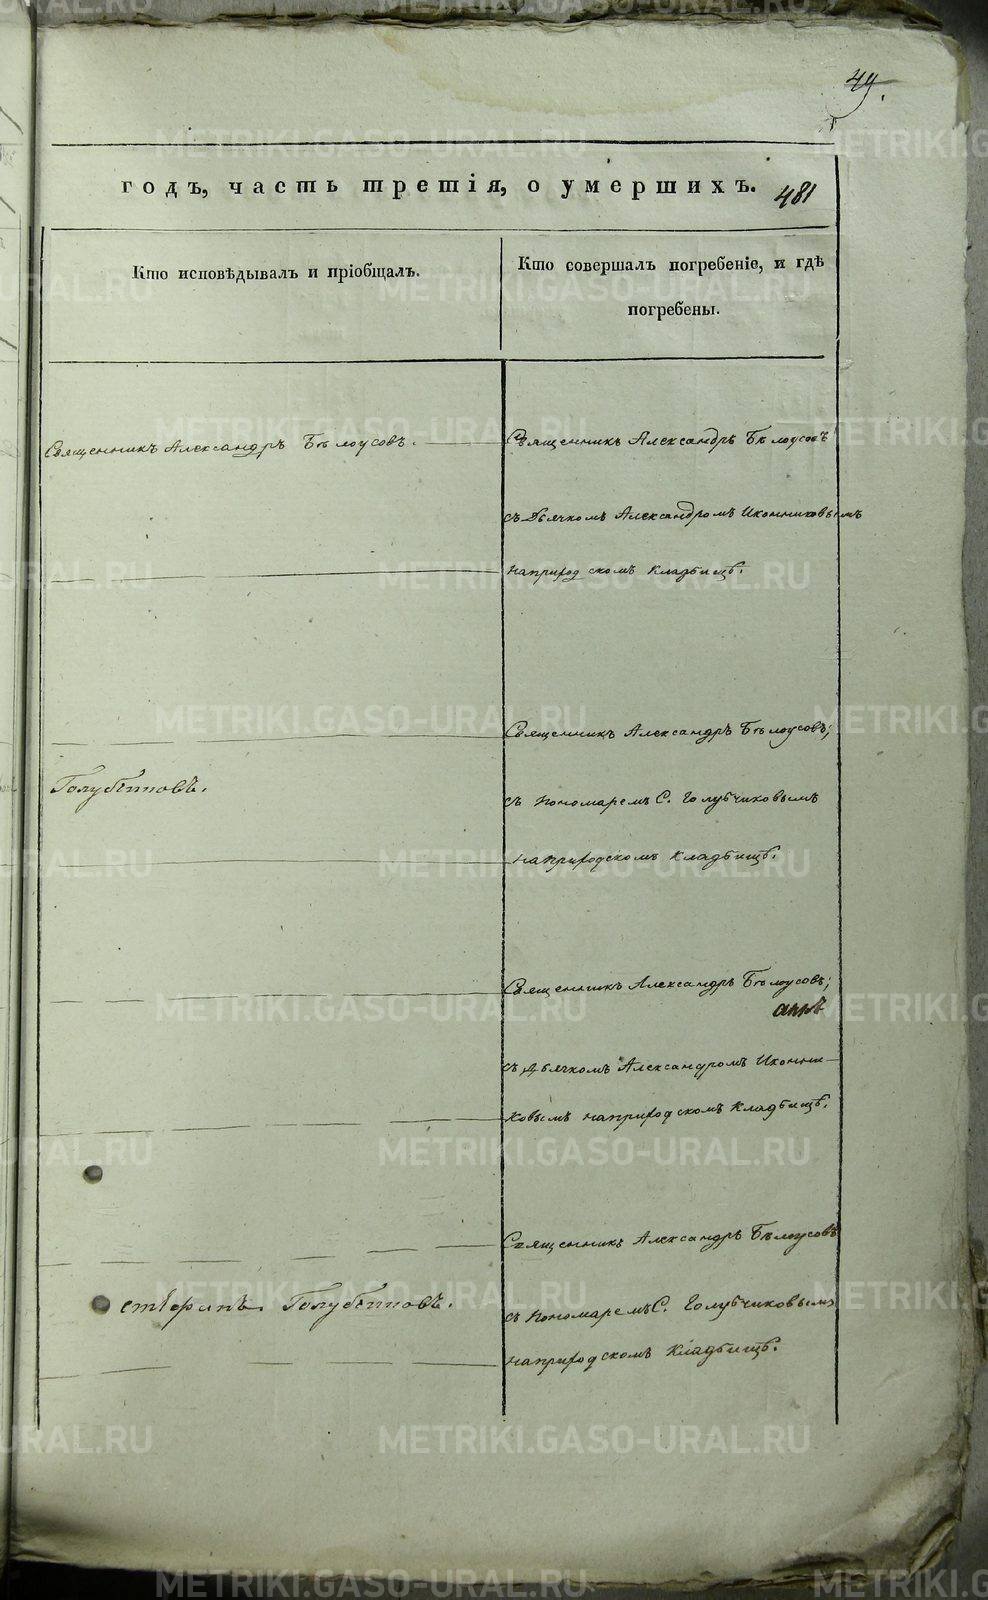 49.
годъ, часть третія, о умершихъ. 481
Кто исповѣдывалъ и пріобщалъ.
Кто совершалъ погребеніе, и гдѣ
погребены.
Священникъ Александръ Бѣлоусовъ.
Священникъ Александръ Бѣлоусовъ
съ Дьячкомъ Александромъ Иконниковымъ
наприходскомъ Кладбищѣ.
Священникъ Александръ Бѣлоусовъ;
съ Пономаремъ С. Голубчиковымъ
наприходскомъ Кладбищѣ.
Священникъ Александръ Бѣлоусовъ;
съ Дьячкомъ Александромъ Иконни-
ковымъ наприходскомъ Кладбищѣ.
Священникъ Александръ Бѣлоусовъ
съ Пономаремъ С. Голубчиковымъ
наприходскомъ Кладбищѣ.
METRIKI.GASO-URAL.RU